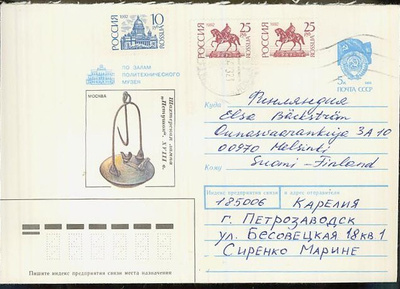 1992
РОССИЯ
10
ROSSIJA
1992
РОССИЯ
25
ROSSIJA
1992
РОССИЯ
25
ROSSIJA
5к
ПОЧТА СССР
ПО ЗАЛАМ
ПОЛИТЕХНИЧЕСКОГО
МУЗЕЯ
МОСКВА
Шахтерская лампа
„Петушок“, XVIII в.
Куда Финляндия
Elsa Bäckström
Ounasvaarankuja 3A10
00970 Helsinki
Кому Suomi-Finland
Индекс предприятия связи и адрес отправителя
185006 Карелия
г. Петрозаводск
ул. Бесовецкая 18кв.1
Сиренко Марине
Пишите индекс предприятия связи места назначения